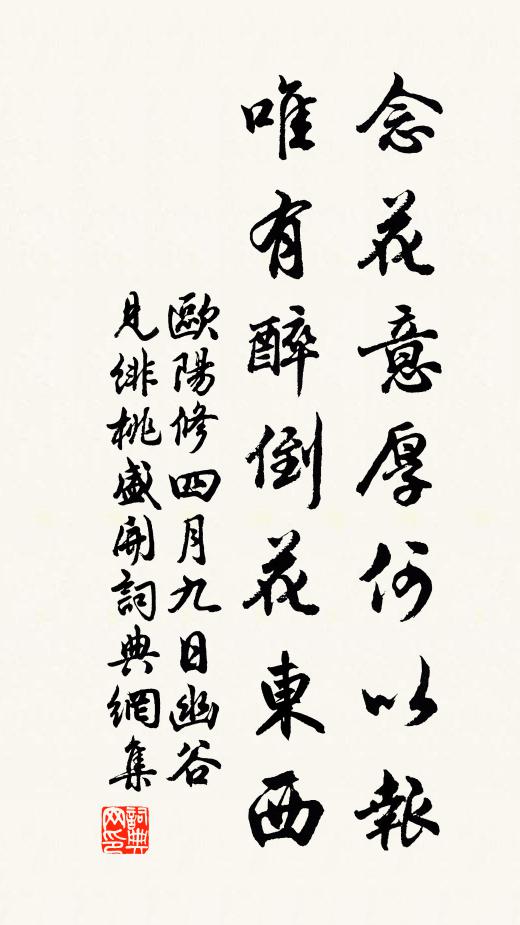 念花意厚何以報
唯有醉倒花東西
歐陽修四月九日幽谷
見緋桃盛開詞典網集
詞典
网印